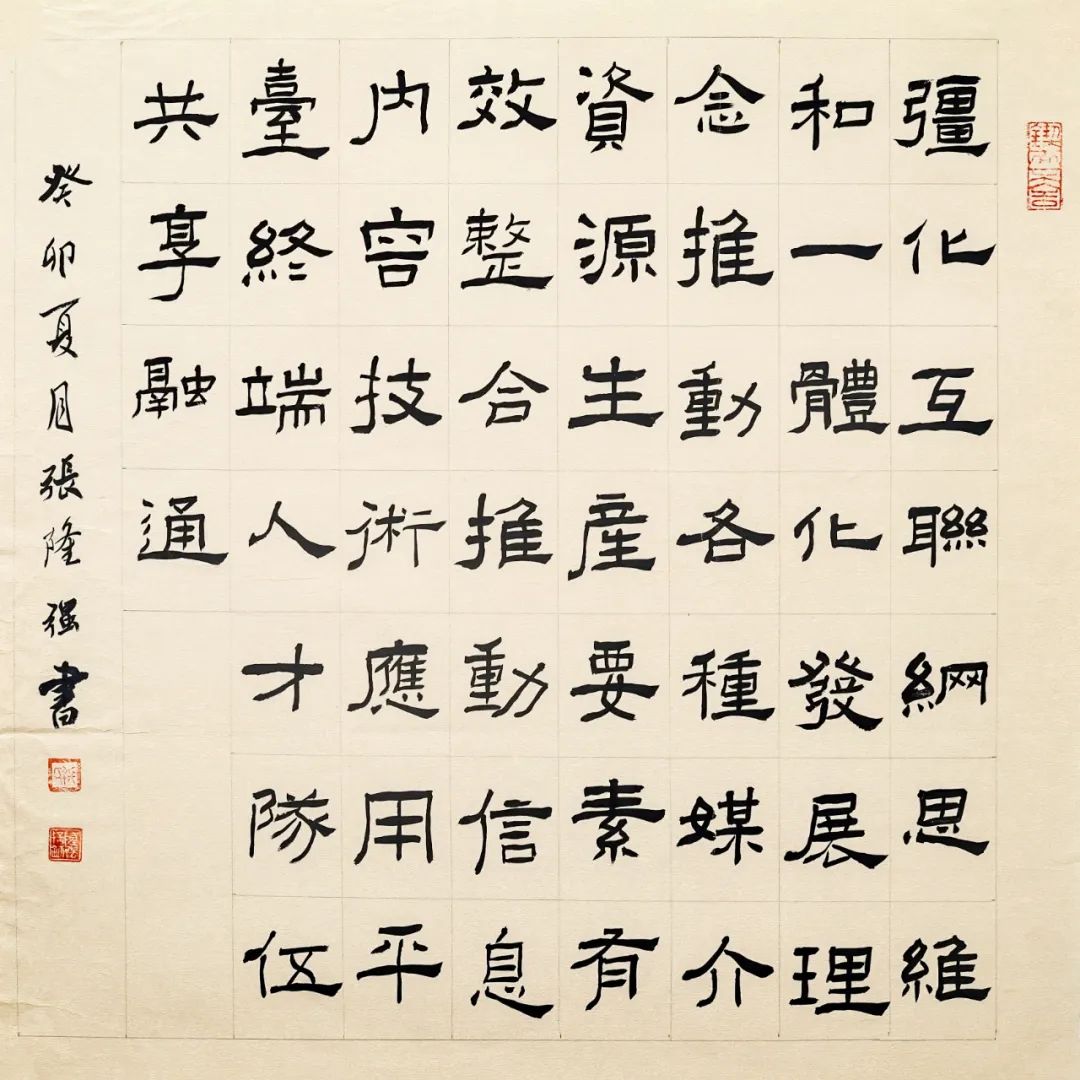 彊化互聯網思維
和一體化發展理
念推動各種媒介
資源生産要素有
效整合推動信息
内容技術應用平
臺終端人才隊伍
共享融通
癸卯夏月張隆强書